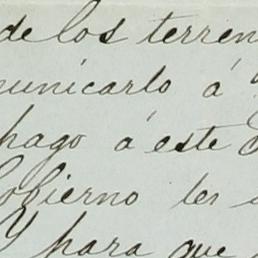 de los terren
unicarlo á
hago á este
Gobierno les
Y para que